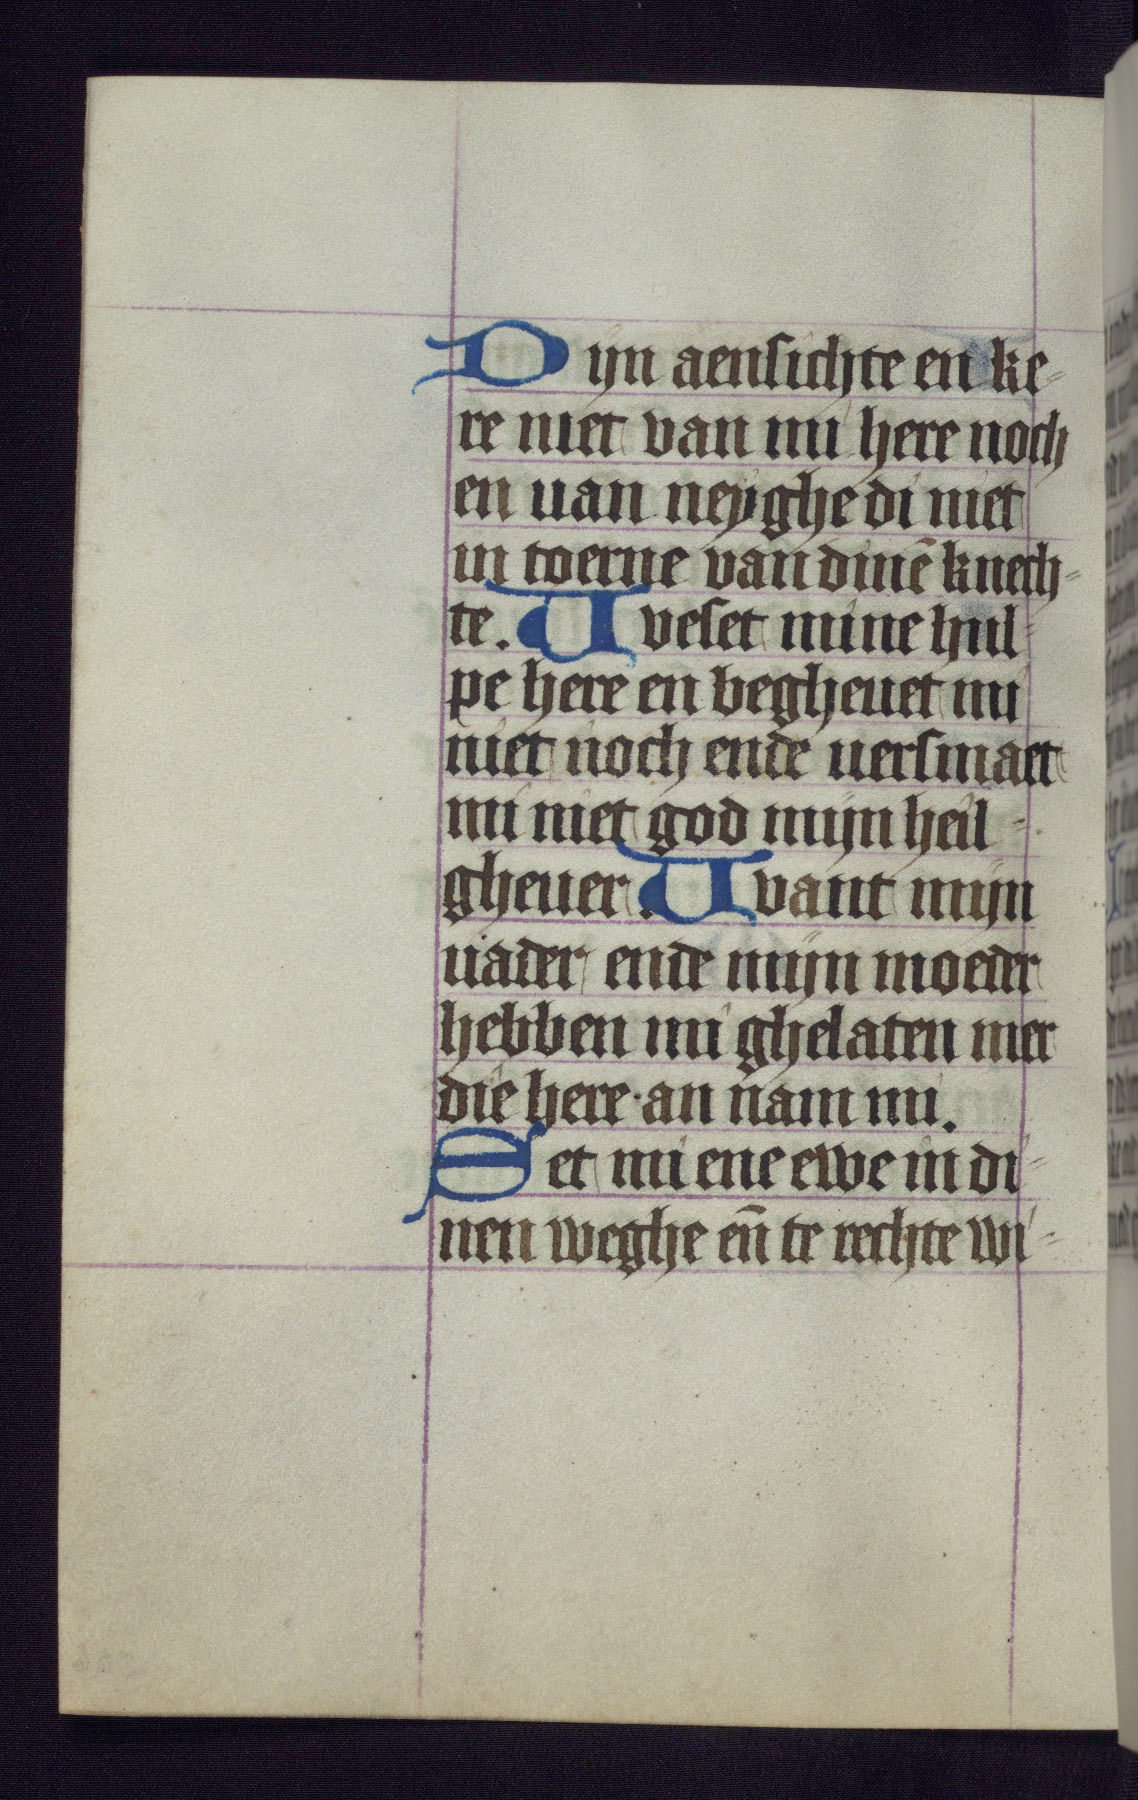 Dijn aensichte en ke-
re niet van mi here noch
en uan neyghe di niet
in toerne van dinē knech-
te. Uveset mine hul-
pe here en begheuet mi
niet noch ende uersmaet
mi niet god mijn heil-
gheuer. Uvant mijn
uader ende mijn moeder
hebben mi ghelaten mer
die here an nam mi.
Set mi ene ewe in di-
nen weghe eñ te rechte wi-